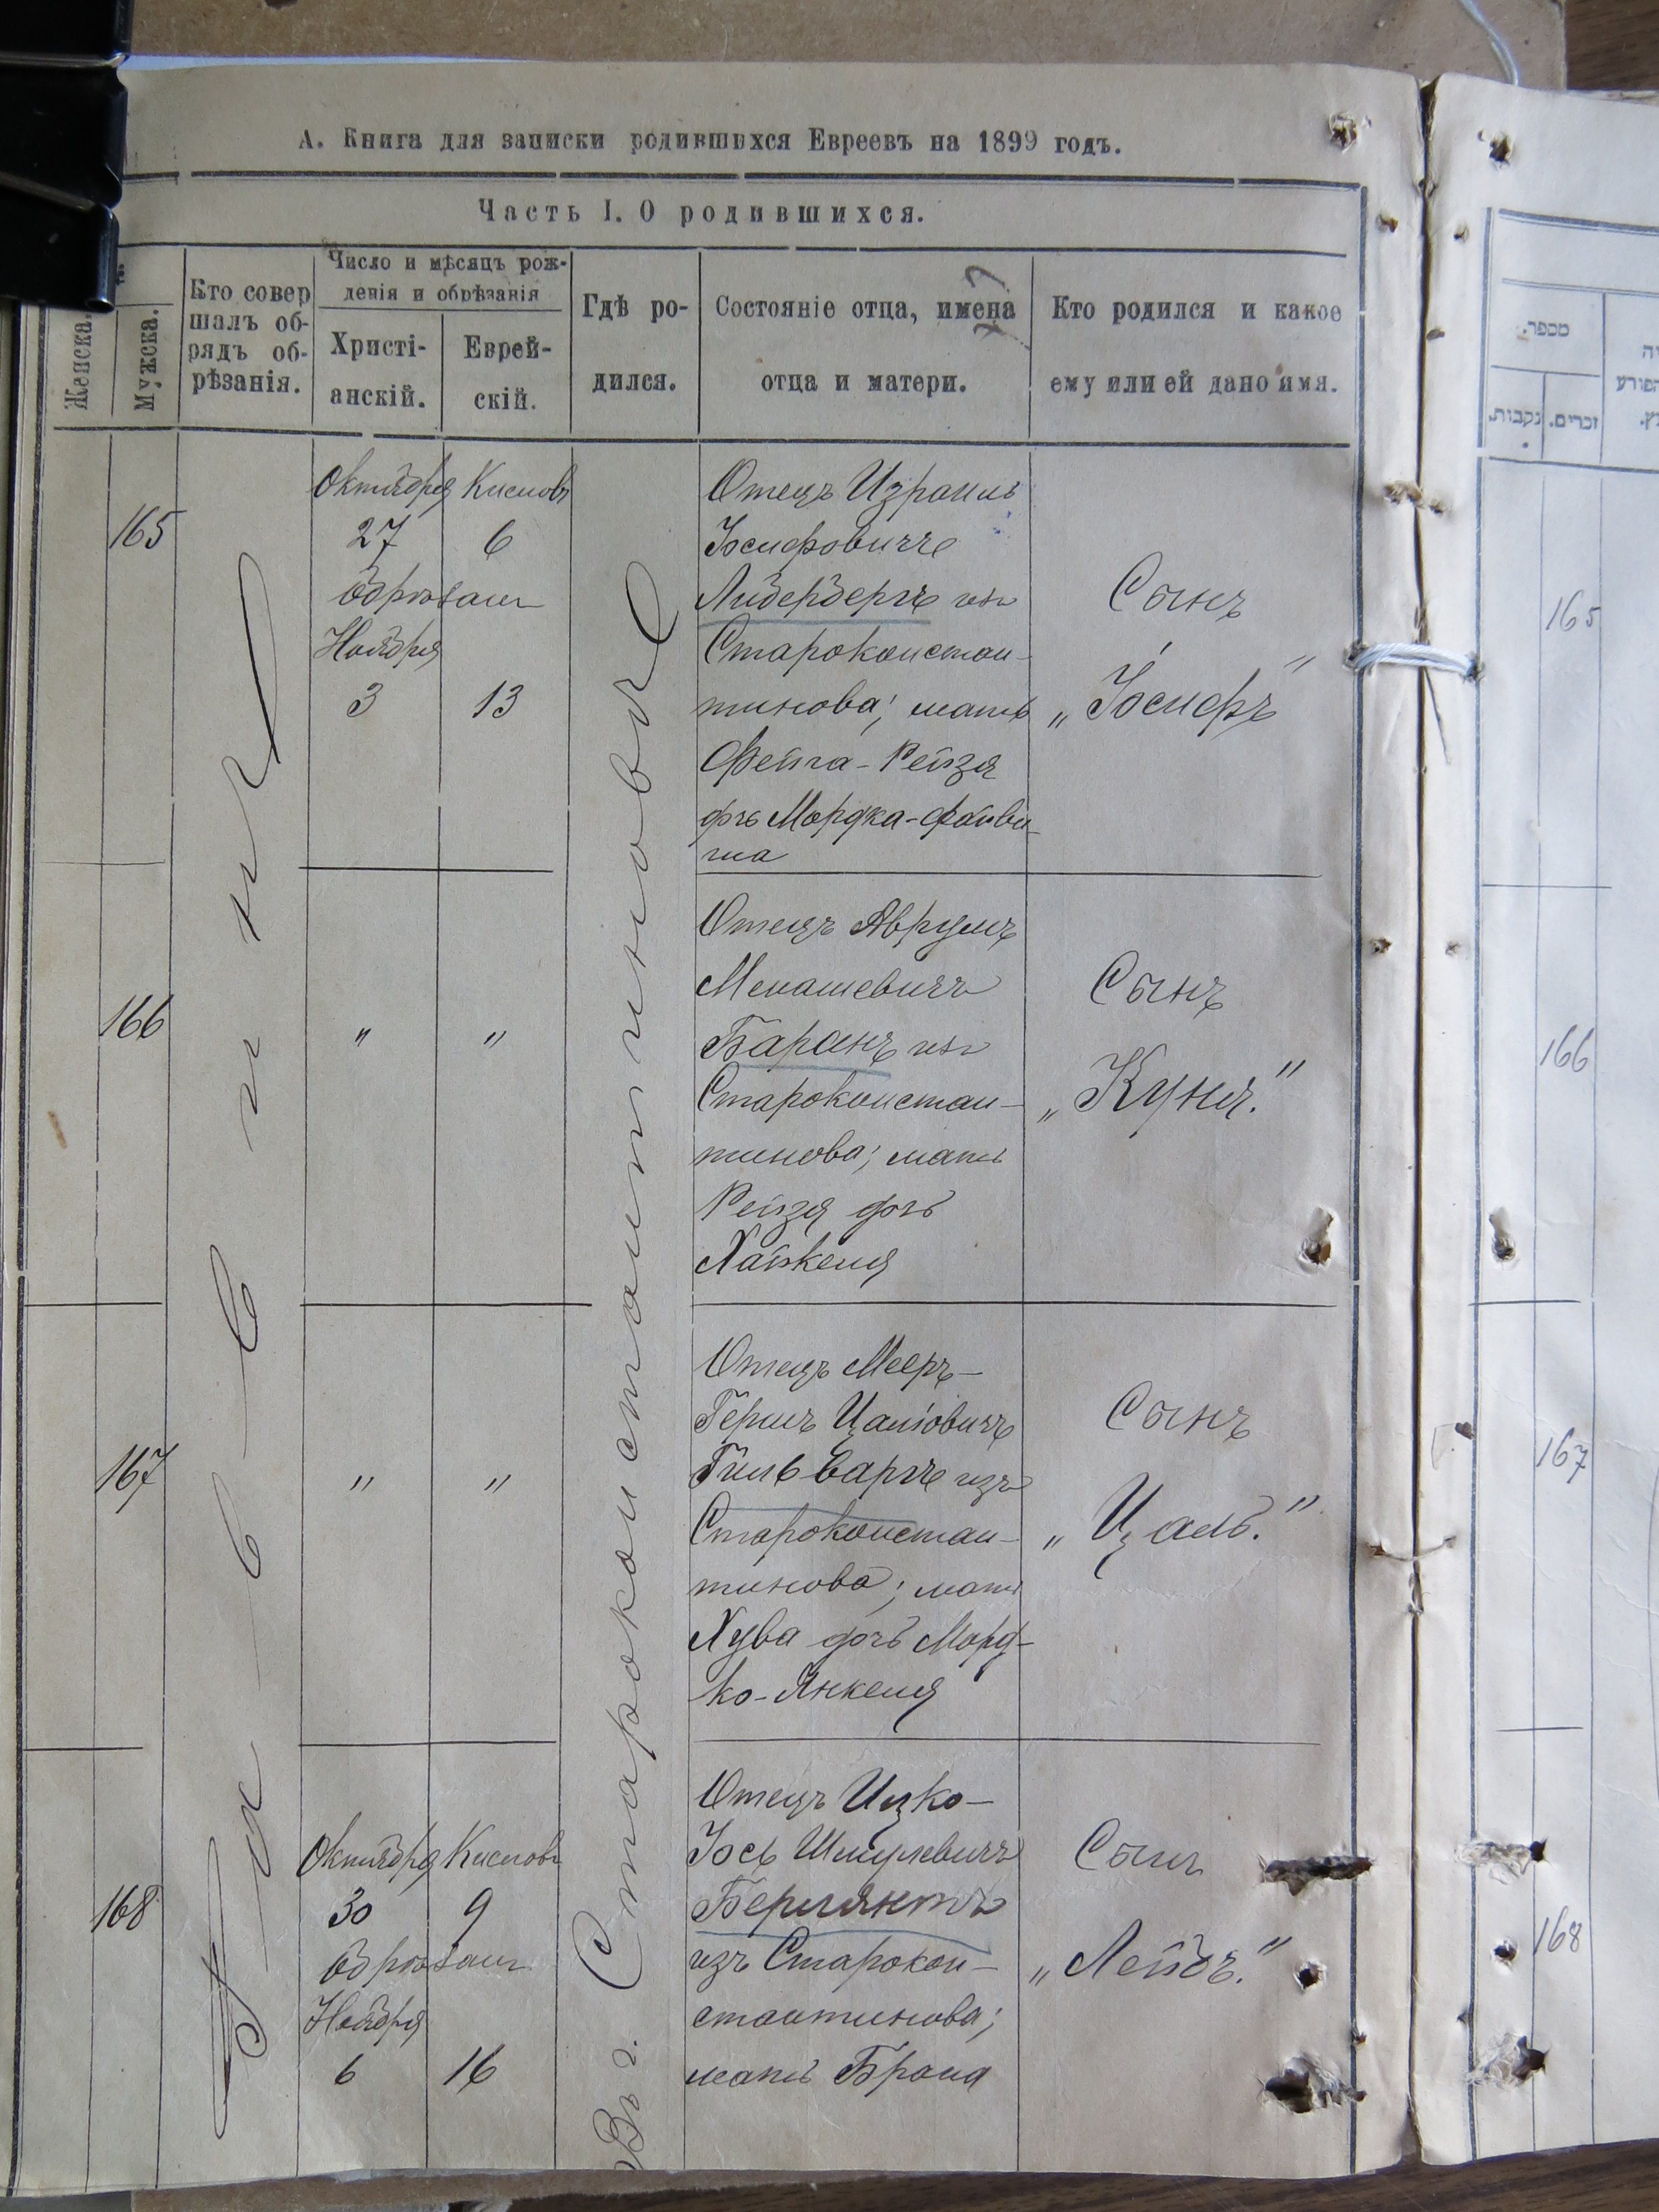 А. Книга для записки родившихся Евреевъ на 1899 годъ.
Часть I. О родившихся.
Женска.
Мужска.
Кто совер
шалъ об-
рядъ об-
рѣзанія.
Число и мѣсяцъ рож-
денія и обрѣзанія
Христі-
анскій.
Еврей-
скій.
Гдѣ ро-
дился.
Состояніе отца, имена
отца и матери.
Кто родился и какое
ему или ей дано имя.
מספר.
נקבות.
זכרים.
Въ г. Староконстантиновѣ
165
Октября Кислов
27 6
Обрѣзан
Ноября
3 13
Отецъ Израиль
Іосифовичъ
Либербергъ изъ
Староконстан-
тинова; мать
Фейга-Рейзя
дочь Мордка-Файви-
ша
Сынъ
„Іосифъ"
165
166
" "
Отецъ Аврумъ
Менашевичъ
Баранъ изъ
Староконстан-
тинова; мать
Рейзя дочь
Хайкеля
Сынъ
„Куня."
166
167
" "
Отецъ Мееръ-
Гершъ Цаліовичъ
Гильваргъ изъ
Староконстан-
тинова; мать
Хува дочь Морд-
ко-Янкеля
Сынъ
„Цаль."
167
168
Октября Кислов
30 9
Обрѣзан
Ноября
6 16
Отецъ Ицко-
Іось Шмулевичъ
Берлянтъ
изъ Старокон-
стантинова;
мать Брана
Сынъ
„Лейбъ."
168